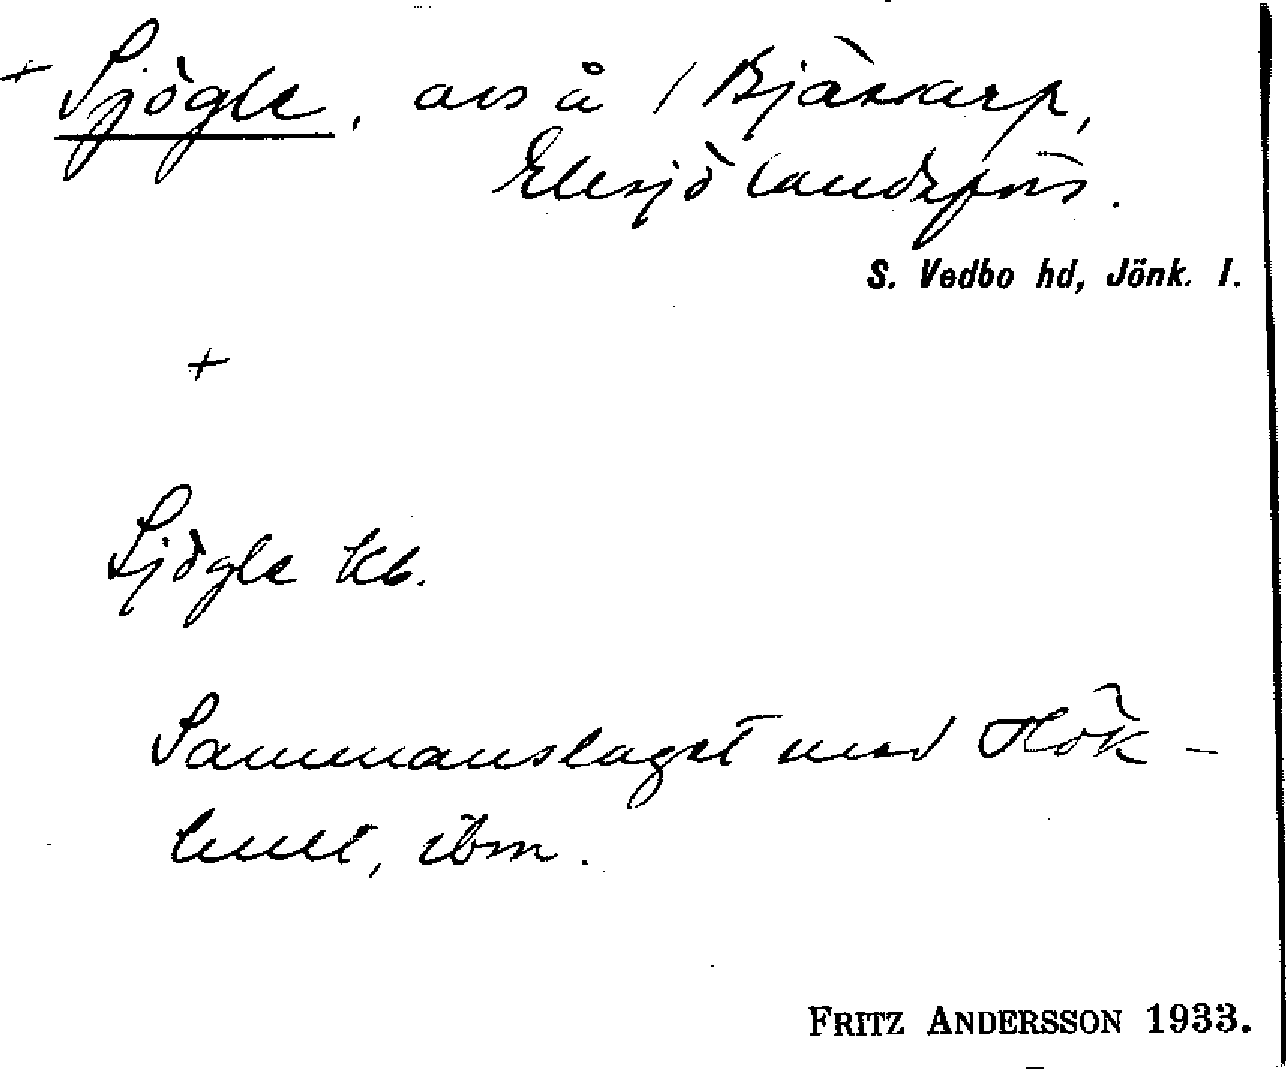 + Sjögle, avs å / Bjässarp,
Eksjö landsförs.
S. Vedbo hd, Jönk. l.
+
Sjögle kb.
Sammanslaget med Hök-
hult, ibm.
FRITZ ANDERSSON 1933.